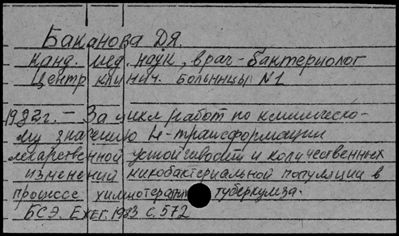 Баканова Д.Я.
канд. мед. наук, врач-бактериолог
Центр. клинич. больницы №1
1982г. – За цикл работ по клиническо-
му значению L-трансформации
лекарственной устойчивости и количественных
изменений микобактериальной популяции в
процессе химиотерапии туберкулеза.
БСЭ. Ежег. 1983 с. 572